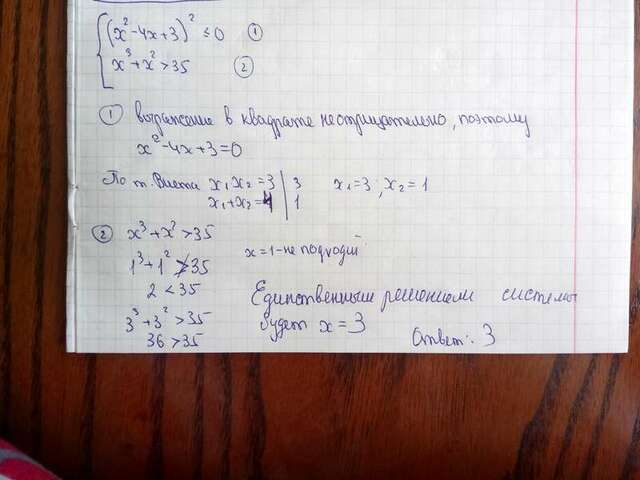 (x² - 4x + 3)² ≤ 0 ①
x³ + x² > 35 ②
① выражение в квадрате неотрицательно, поэтому
x² - 4x + 3 = 0
По т. Виета x₁x₂ = 3 | 3 x₁ = 3; x₂ = 1
x₁ + x₂ = 4 | 1
② x³ + x² > 35
1³ + 1² ≯ 35 x = 1 - не подходит
2 < 35
3³ + 3² > 35
36 > 35
Единственным решением системы
будет x = 3
Ответ: 3